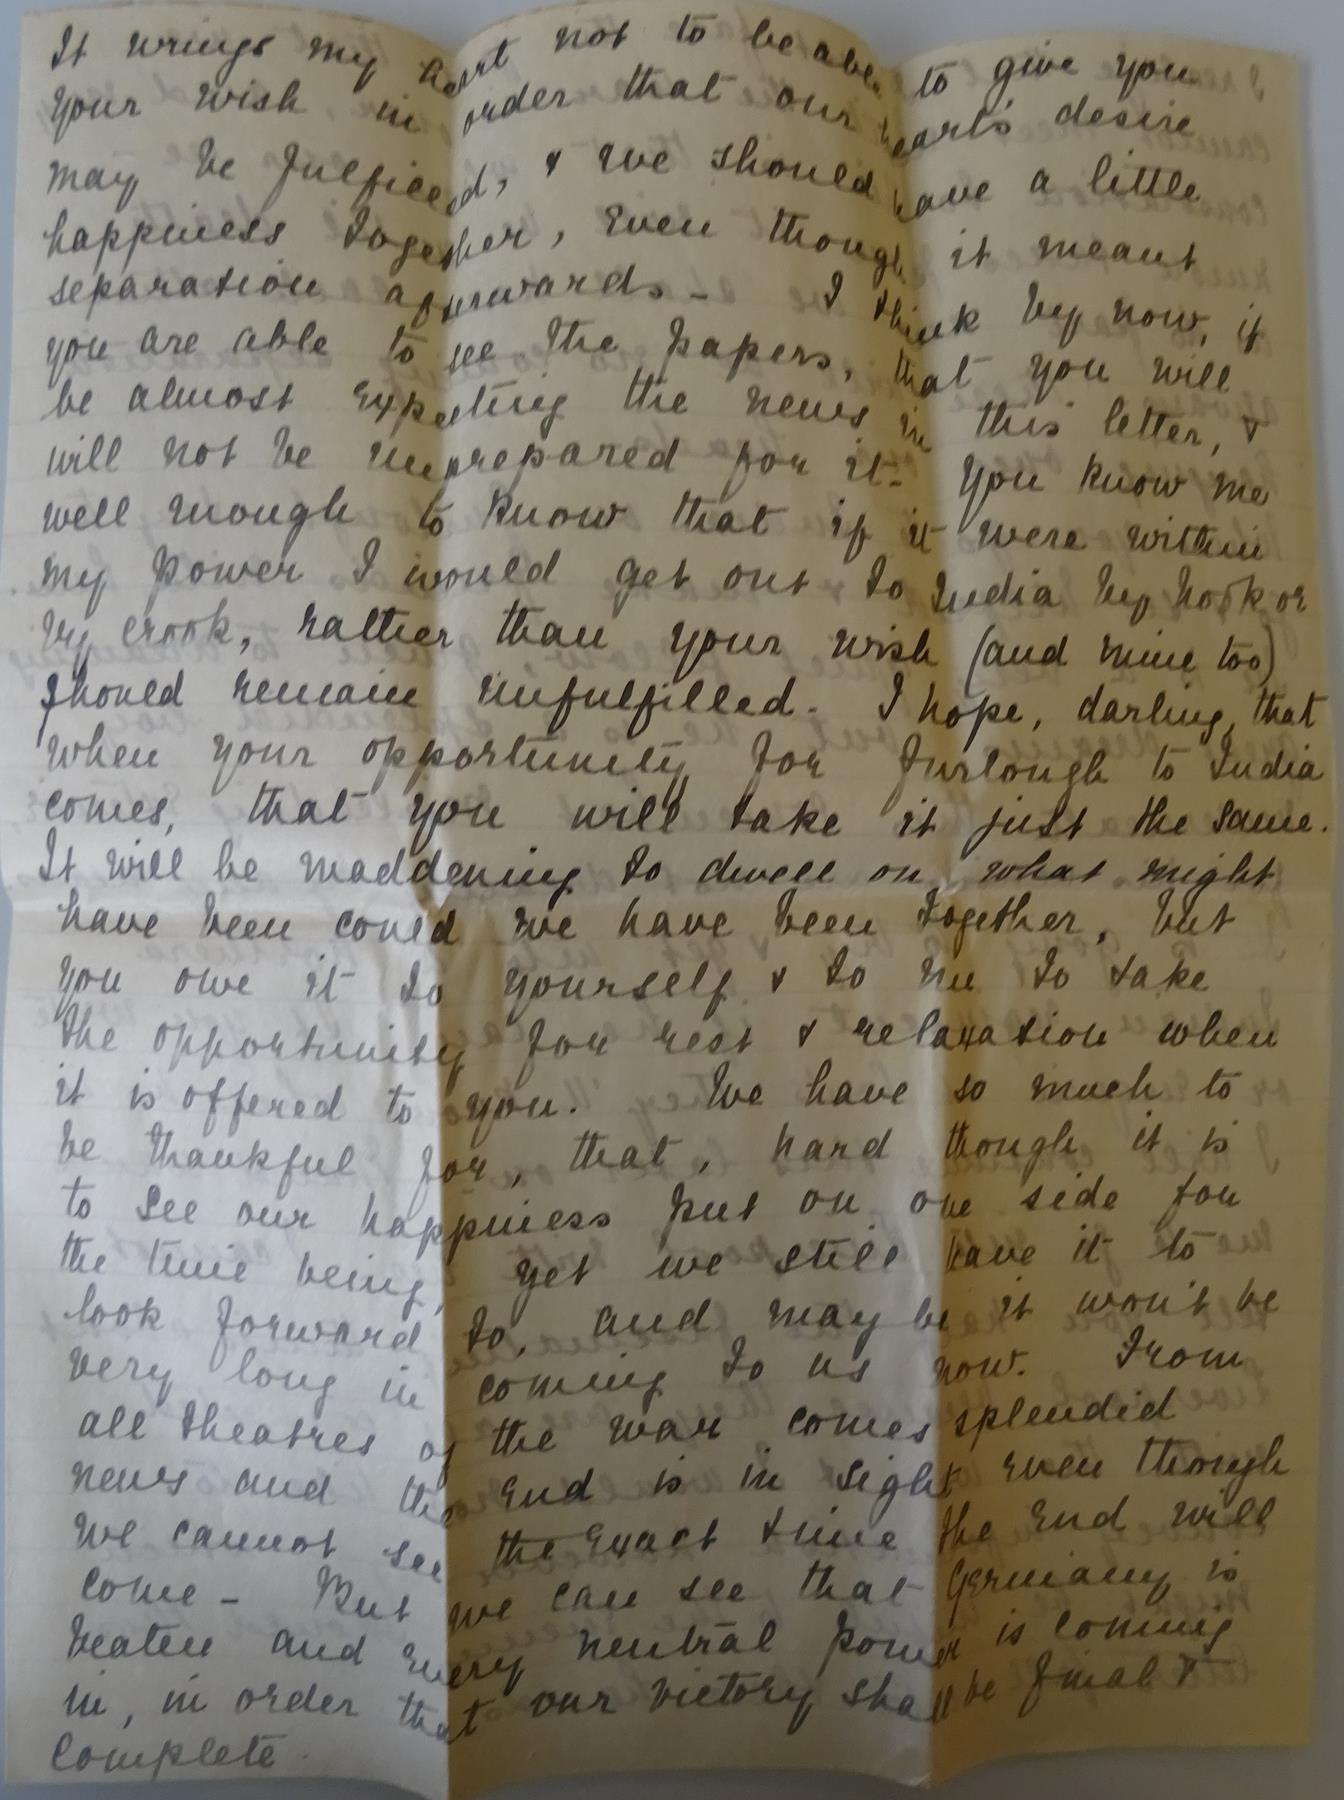 It wrings my heart not to be able to give you
your wish in order that our heart's desire
may be fulfilled, & we should have a little
happiness together, even though it meant
separation afterwards - I think by now, if
you are able to see the papers, that you will
be almost expecting the news in this letter, &
will not be unprepared for it - You know me
well enough to know that if it were within
my power I would get out to India by hook or
by crook, rather than your wish (and mine too)
should remain unfulfilled - I hope, darling, that
when your opportunity for furlough to India
comes, that you will take it just the same.
It will be maddening to dwell on what might
have been could we have been together, but
you owe it to yourself & to me to take
the opportunity for rest & relaxation when
it is offered to you. We have so much to
be thankful for, that, hard though it is
to see our happiness put on one side for
the time being, yet we still have it to
look forward to, and may be it won't be
very long in coming to us now. From
all theatres of the war comes splendid
news and the end is in sight even though
we cannot see the exact time the end will
come - But we can see that Germany is
beaten and every neutral power is coming
in, in order that our victory shall be final &
complete.